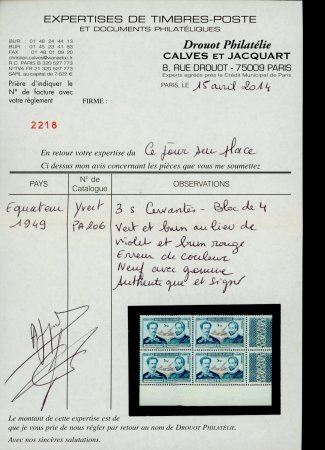 EXPERTISES DE TIMBRES-POSTE
ET DOCUMENTS PHILATÉLIQUES
BUR. 01 48 24 44 13
BUR. 01 45 23 41 63
FAX 01 48 01 09 20
christian.calves@wanadoo.fr
R.C. PARIS B 320 527 773
N° TVA FR 21 320 527 773
SARL au capital de 7 622 €
Drouot Philatélie
CALVES ET JACQUART
8, RUE DROUOT - 75009 PARIS
Experts agréés près le Crédit Municipal de Paris
Prière d'indiquer le
N° de facture avec
votre règlement
FIRME :
PARIS, LE 15 avril 2014
2218
En retour votre expertise du Ce jour sur place
Ci dessus mon avis concernant les pièces que vous me soumettez
PAYS
N° de
Catalogue
OBSERVATIONS
Equateur
1949
Yvert
PA206
3 s Cervantès - Bloc de 4
Vert et brun au lieu de
violet et brun rouge
Erreur de couleur
Neuf avec gomme
Authentique et signé
Le montant de cette expertise est de
que je vous prie de nous régler par retour au nom de DROUOT PHILATÉLIE.
Avec nos sincères salutations.